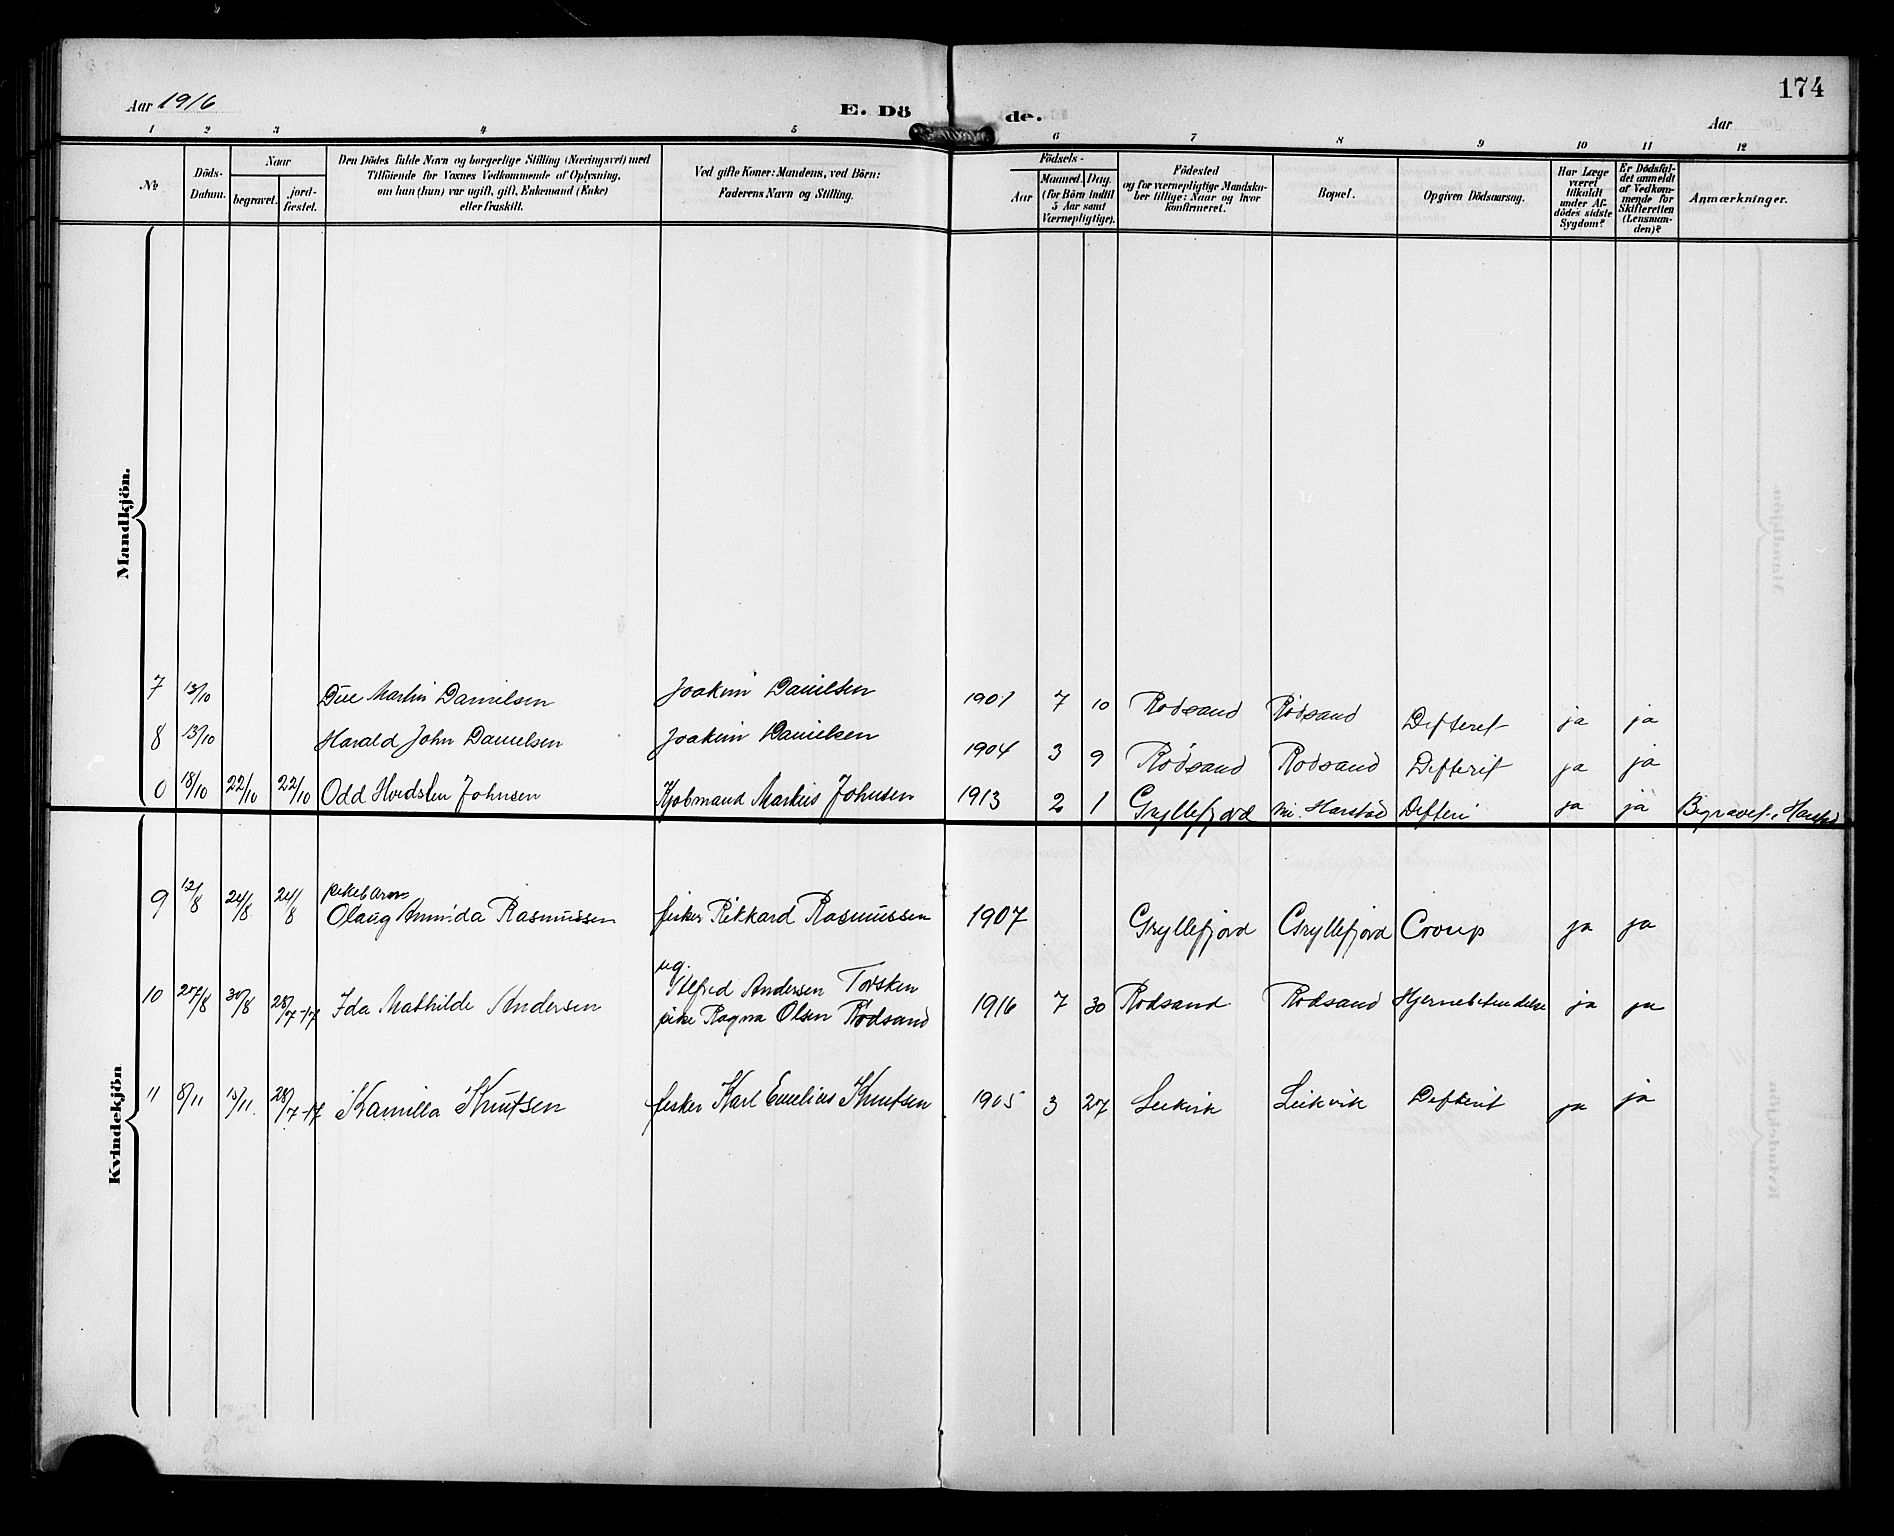 174
Aar 1916
E. Dö
de.
Aar
1 2 3 4 5 6 7 8 9 10 11 12
No
Döds-
Datum.
Naar
begravet.
jord-
fæstet.
Den Dödes fulde Navn og borgerlige Stilling (Næringsvei) med
Tilföiende for Voxnes Vedkommende af Oplysning,
om han (hun) var ugift, gift, Enkemand (Enke)
eller fraskilt.
Ved gifte Koner: Mandens, ved Börn:
Faderens Navn og Stilling.
Födsels-
Aar
Maaned. Dag.
(for Börn indtil
5 Aar samt
Værnepligtige).
Födested
og for værnepligtige Mandska-
ber tillige: Naar og hvor
konfirmeret.
Bopæl.
Opgiven Dödsaarsag.
Har Læge
været
tilkaldt
under Af-
dödes sidste
Sygdom?
Er Dödsfal-
det anmeldt
af Vedkom-
mende for
Skifteretten
(Lensman-
den)?
Anmærkninger.
Mandkjön.
7 13/10 Martin Danielsen Joakim Danielsen 1901 7 10 Rödsand Rödsand Difterit ja ja
8 13/10 Harald John Danielsen Joakim Danielsen 1904 3 9 Rödsand Rodsand Difterit ja ja
0 18/10 22/10 22/10 Odd Hvidsten Johnsen Kjøbmand Markus Johnsen 1913 2 1 Gryllefjord Harstad Difteri ja ja Begravet i Harstad
Kvindekjön
9 12/8 24/8 24/8 pikebarn
Olaug Aminda Rasmussen fisker Rikkard Rasmussen 1907 Gryllefjord Gryllefjord Croup ja ja
10 27/8 30/8 28/7-17 Ida Mathilde Andersen ug.
Alfred Andersen Torsken
pike Ragna Olsen Rodsand 1916 7 30 Rodsand Rodsand Hjernebetændelse ja ja
11 8/11 15/11 28/7-17 Kamilla Knutsen fisker Karl Emelius Knutsen 1905 3 27 Leikvik Leikvik Difterit ja ja